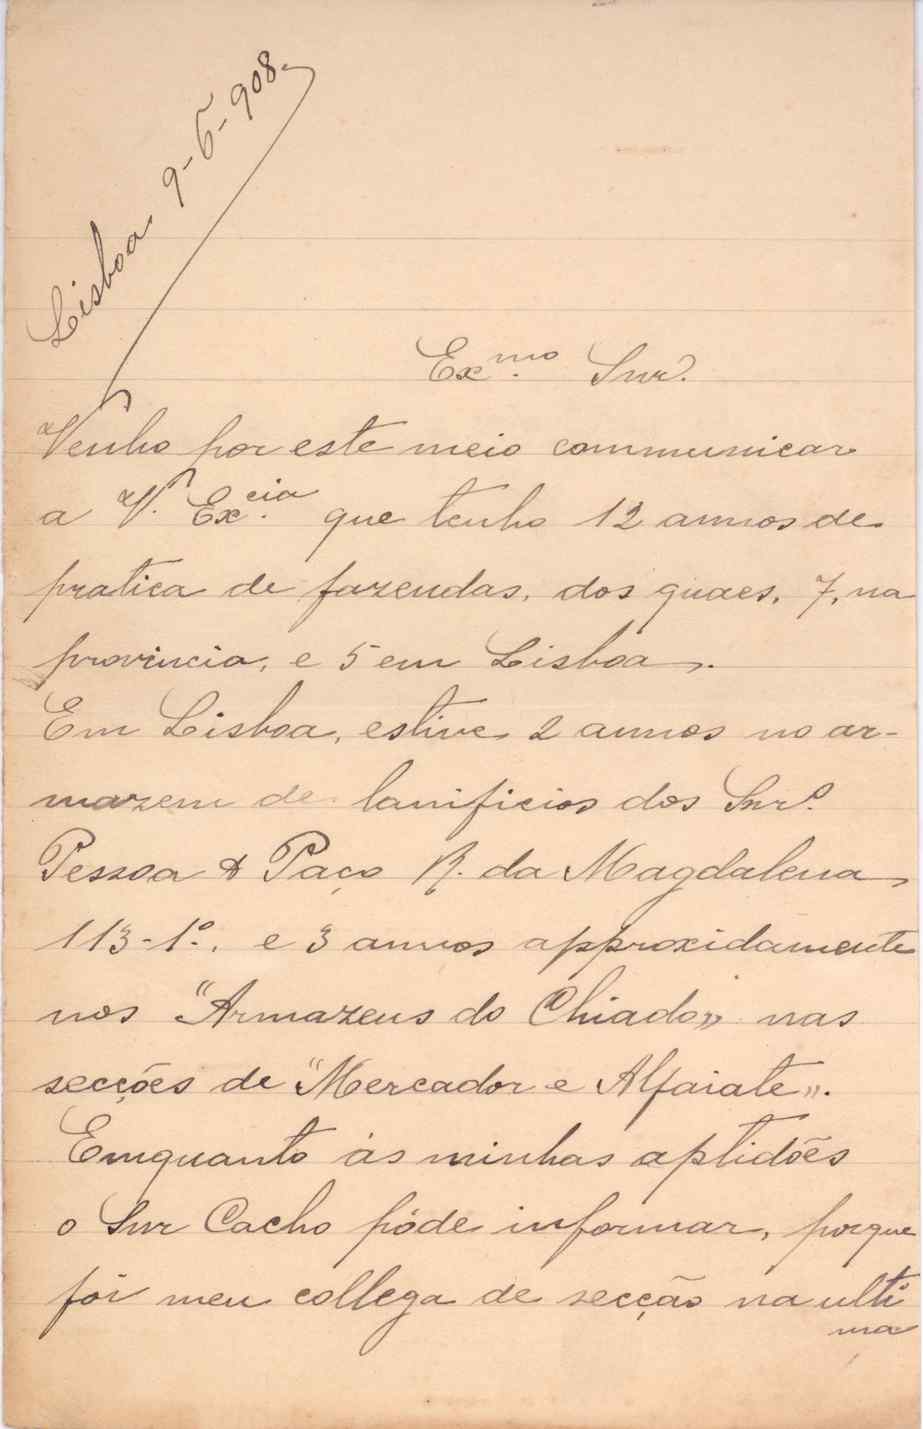 Lisboa 9-6-908.
Ex.mo Snr.
Venho por este meio communicar
a V. Ex.cia que tenho 12 annos de
pratica de fazendas, dos quaes, 7, na
provincia, e 5 em Lisboa.
Em Lisboa, estive 2 annos no ar-
mazem de lanificios dos Snr.s
Pessoa & Paço R. da Magdalena
113-1º. e 3 annos approxidamente
nos "Armazens do Chiado" nas
secções de "Mercador e Alfaiate".
Emquanto ás minhas aptidões
o Snr Cacho póde informar, porque
foi meu collega de secção na ulti
ma